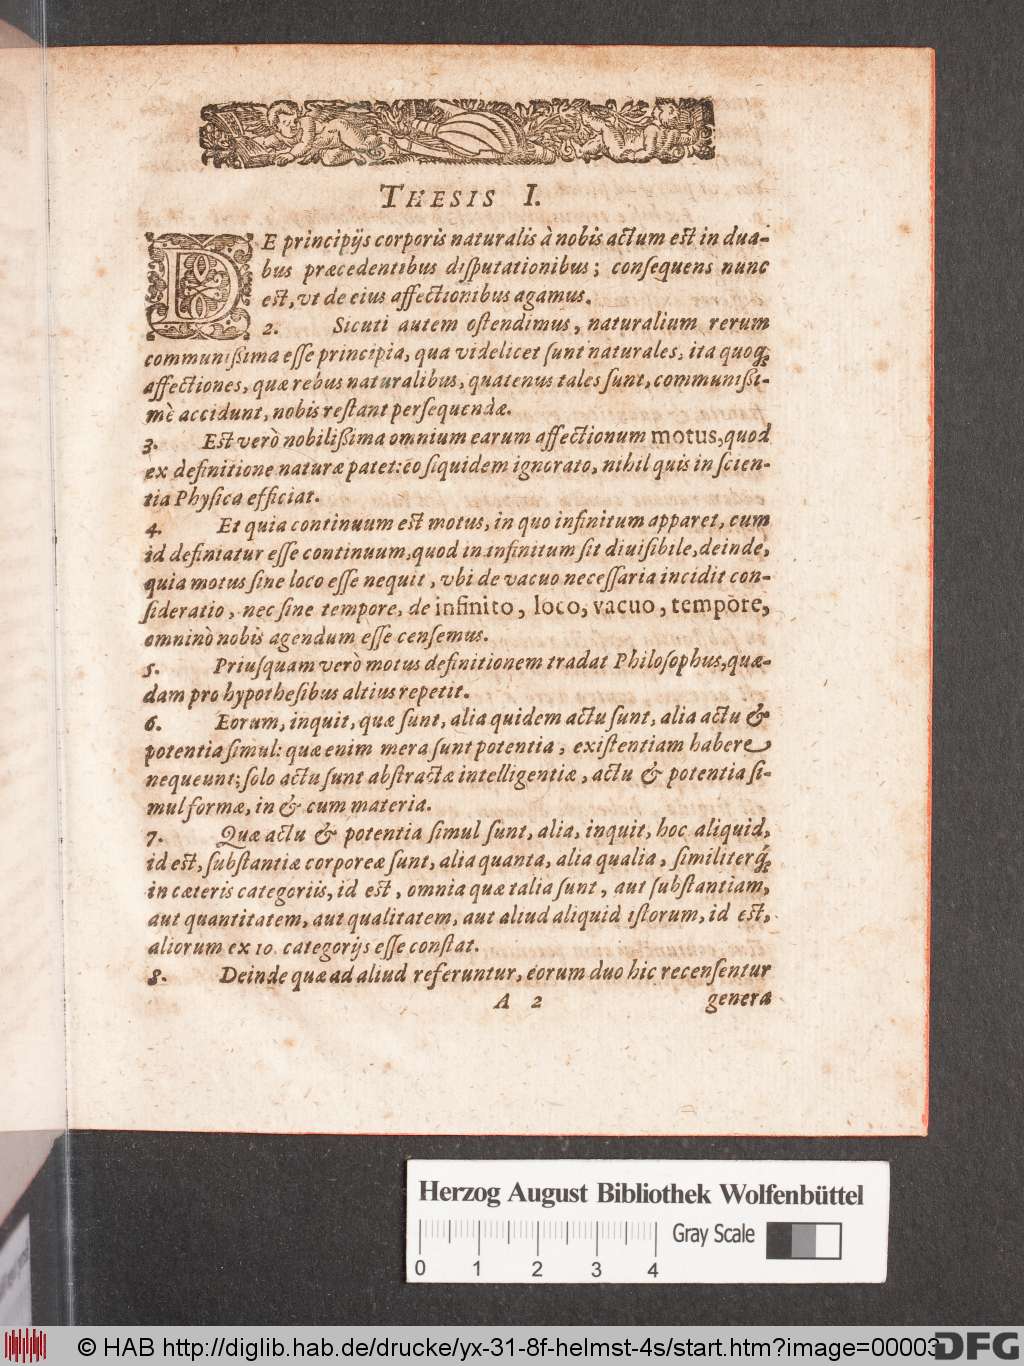 THESIS I.
DE principijs corporis naturalis à nobis actum est in dua-
bus præcedentibus disputationibus; consequens nunc
est, vt de eius affectionibus agamus.
2. Sicuti autem ostendimus, naturalium rerum
communißima esse principia, qua videlicet sunt naturales, ita quoq;
affectiones, quæ rebus naturalibus, quatenus tales sunt, communißi-
mè accidunt, nobis restant persequendæ.
3. Est verò nobilißima omnium earum affectionum motus, quod
ex definitione naturæ patet: eo siquidem ignorato, nihil quis in scien-
tia Physica efficiat.
4. Et quia continuum est motus, in quo infinitum apparet, cum
id definiatur esse continuum, quod in infinitum sit diuisibile, deinde,
quia motus sine loco esse nequit, vbi de vacuo necessaria incidit con-
sideratio, nec sine tempore, de infinito, loco, vacuo, tempore,
omninò nobis agendum esse censemus.
5. Priusquam verò motus definitionem tradat Philosophus, quæ-
dam pro hypothesibus altius repetit.
6. Eorum, inquit, quæ sunt, alia quidem actu sunt, alia actu &
potentia simul: quæ enim mera sunt potentia, existentiam habere
nequeunt; solo actu sunt abstractæ intelligentiæ, actu & potentia si-
mul formæ, in & cum materia.
7. Quæ actu & potentia simul sunt, alia, inquit, hoc aliquid,
id est, substantiæ corporeæ sunt, alia quanta, alia qualia, similiterq;
in cæteris categoriis, id est, omnia quæ talia sunt, aut substantiam,
aut quantitatem, aut qualitatem, aut aliud aliquid istorum, id est,
aliorum ex 10. categorijs esse constat.
8. Deinde quæ ad aliud referuntur, eorum duo hic recensentur
A 2 genera
Herzog August Bibliothek Wolfenbüttel
Gray Scale
0 1 2 3 4
© HAB http://diglib.hab.de/drucke/yx-31-8f-helmst-4s/start.htm?image=00003
DFG